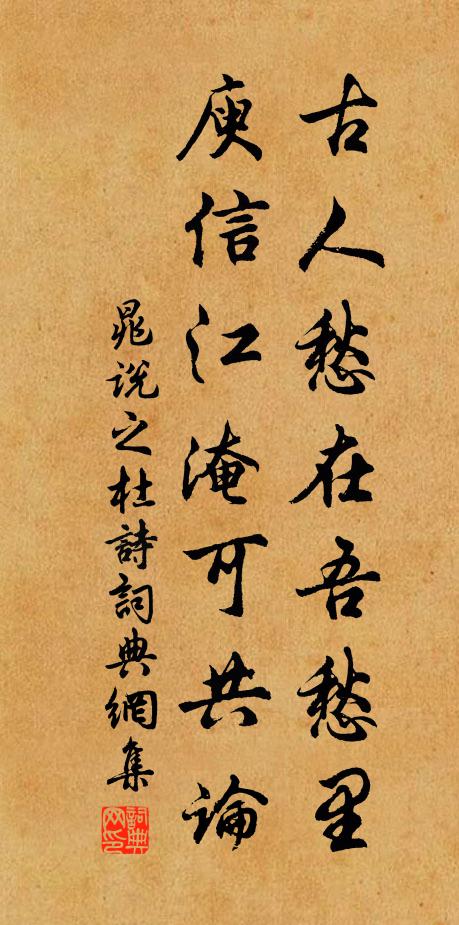 古人愁在吾愁里
庾信江淹可共論
晁説之杜詩詞典網集
詞典
网印